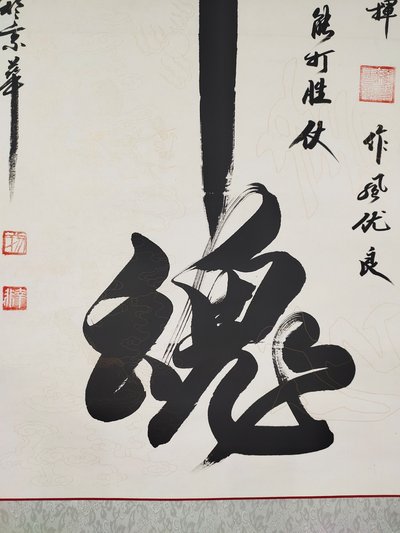 揮
能打胜仗
作風优良
魂
京華